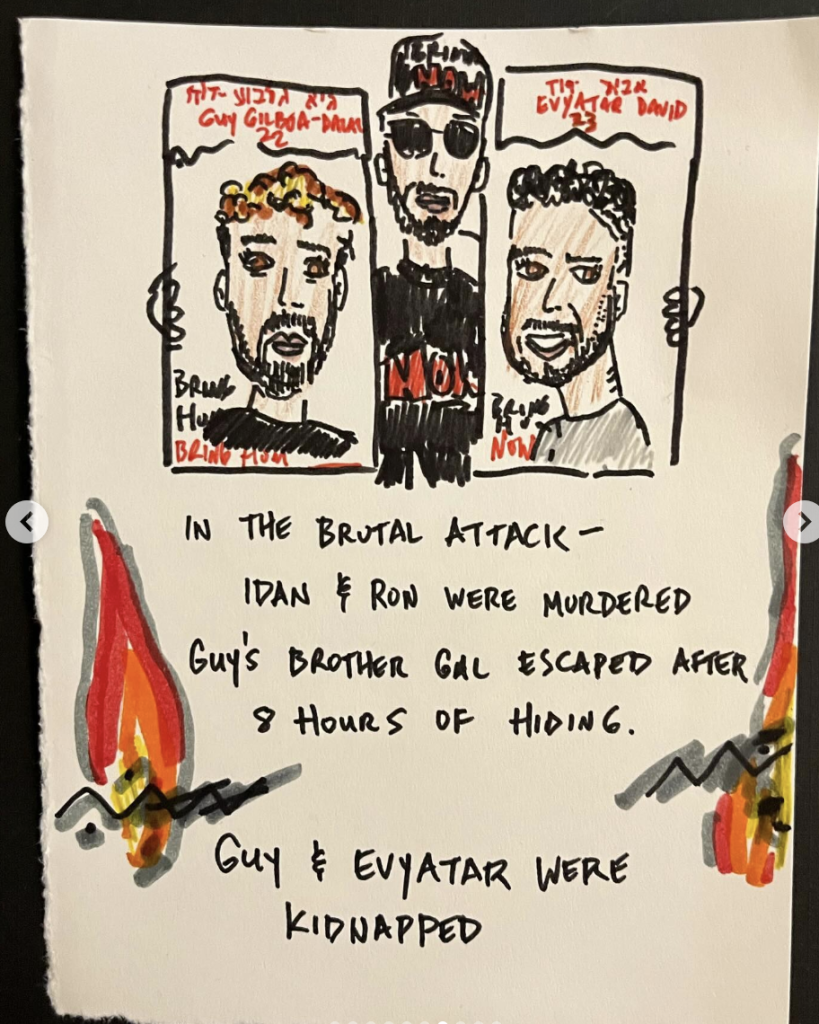 BRING
NOW
גיא גלבוע-דלל
GUY GILBOA-DALAL
22
אביתר דוד
EVYATAR DAVID
23
NOW
BRING
BRING HOM
BRING
NOW
IN THE BRUTAL ATTACK—
IDAN & RON WERE MURDERED
GUY'S BROTHER GAL ESCAPED AFTER
8 HOURS OF HIDING.
GUY & EVYATAR WERE
KIDNAPPED